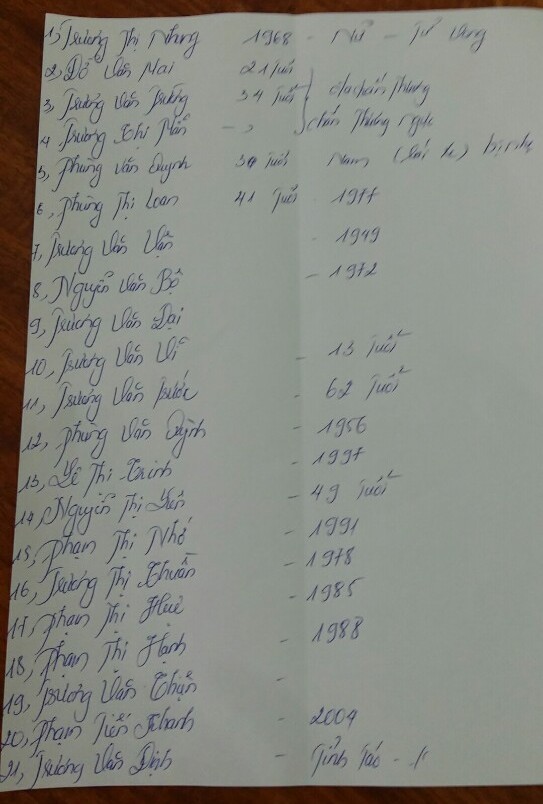 1, Trương Thị Nhung 1968 - Nữ - Tử Vong
2, Đỗ Văn Mai 21 Tuổi
3, Trương Văn Trường 34 Tuổi đa chấn Thương
4 Trương Thị Mẫn - chấn Thương ngực
5, Phùng Văn Quỳnh 34 Tuổi Nam
6, Phùng Thị Loan 41 Tuổi - 1977
7, Trương Văn Vận - 1949
8, Nguyễn Văn Bộ - 1972
9, Trương Văn Đại
10, Trương Văn Vĩ - 13 Tuổi
11, Trương Văn Trước - 62 Tuổi
12, Phùng Văn Quỳnh - 1956
13, Lê Thị Trinh - 1997
14, Nguyễn Thị Yến - 49 Tuổi
15, Phạm Thị Nhớ - 1991
16, Trương Thị Thuần - 1978
17, Phạm Thị Huệ - 1985
18, Phạm Thị Hạnh - 1988
19, Trương Văn Thận -
20, Phạm Tiến Thanh - 2004
21, Trương Văn Định - Tỉnh Táo